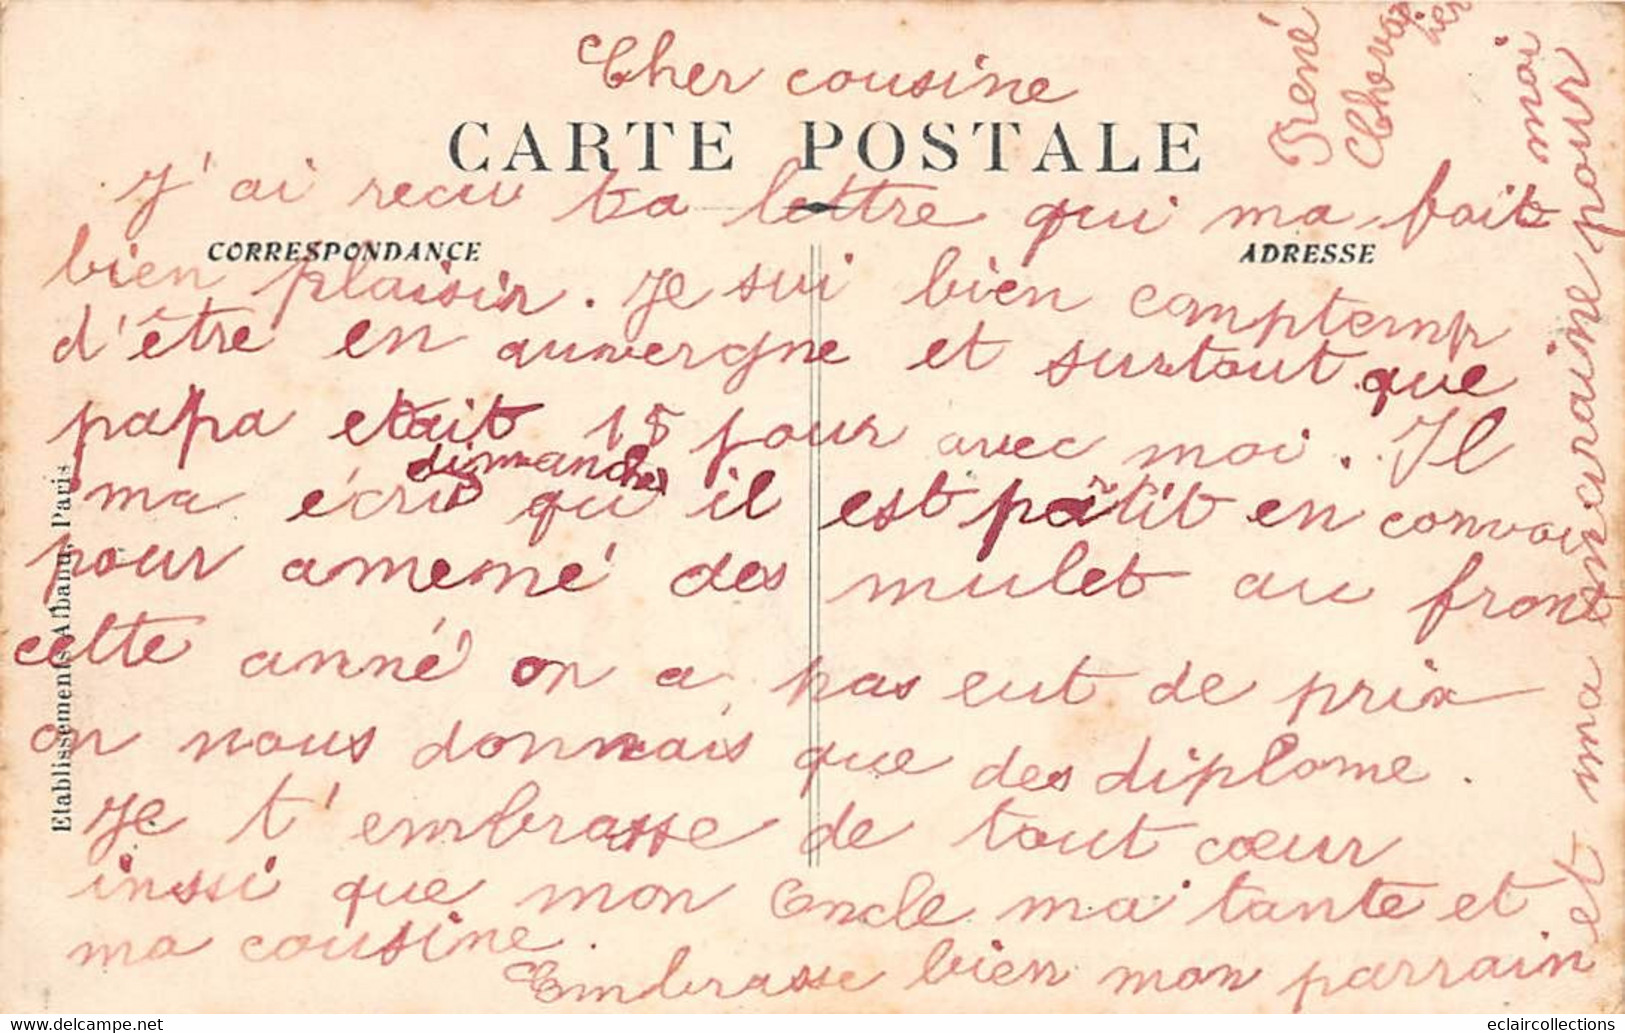 Cher cousine
CARTE POSTALE
J'ai recu ta lettre qui ma fait
CORRESPONDANCE
ADRESSE
bien plaisir. Je sui bien comptemp
d'être en auvergne et surtout que
papa etait 15 jour avec moi. Il
dimanche
ma écrit qu il est partit en convoi
pour amené des mulet au front
cette anné on a pas eut de prix
on nous donnais que des diplome.
Je t'embrasse de tout cœur
inssi que mon Oncle ma tante et
ma cousine.
Embrasse bien mon parrain
et ma marraine pour
moi
René
Cheva
lier
Etablissements Albanu, Paris
eclaircollections
www.delcampe.net